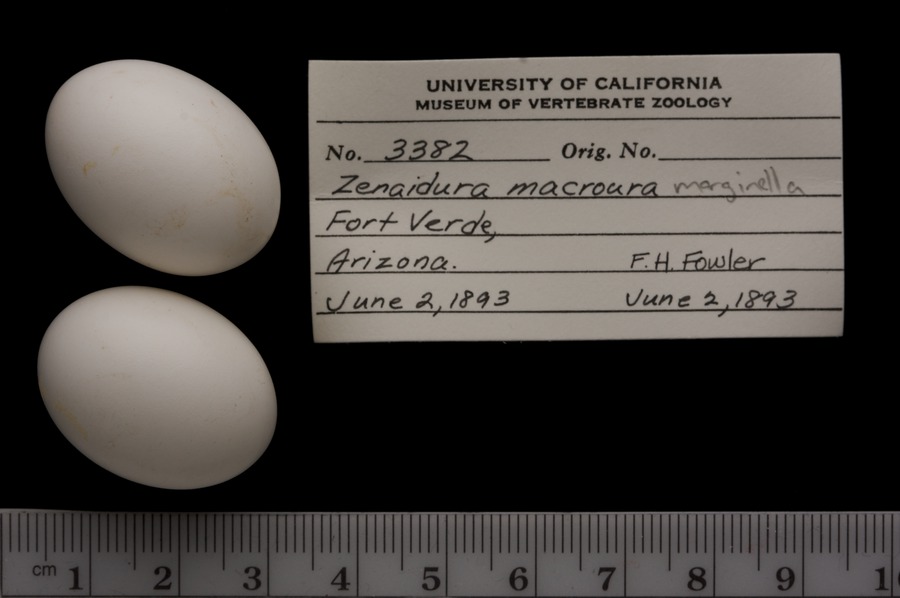 UNIVERSITY OF CALIFORNIA
MUSEUM OF VERTEBRATE ZOOLOGY
No. 3382 Orig. No.
Zenaidura macroura marginella
Fort Verde,
Arizona. F.H. Fowler
June 2, 1893 June 2, 1893
cm 1 2 3 4 5 6 7 8 9 1